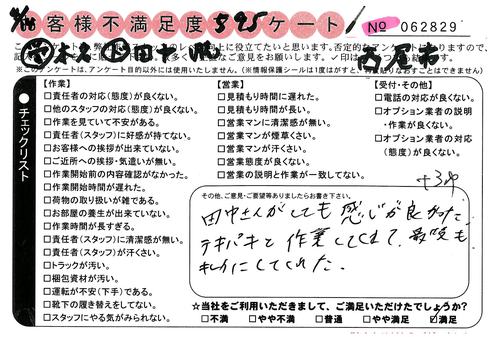 お客様不満足度アンケート
№ 062829
西尾市
※このアンケートは、アンケート目的以外には使用いたしません。(※情報保護シールは1度がはすと、再度貼りなおすことはできません)
チェックリスト
【作業】
□責任者の対応(態度)が良くない。
□他のスタッフの対応(態度)が良くない。
□作業を見ていて不安がある。
□責任者(スタッフ)に好感が持てない。
□お客様への挨拶が出来ていない。
□ご近所への挨拶・気遣いが無い。
□作業開始前の内容確認がなかった。
□作業開始時間が遅れた。
□荷物の取り扱いが雑である。
□お部屋の養生が出来ていない。
□作業時間が長すぎる。
□責任者(スタッフ)に清潔感が無い。
□責任者(スタッフ)が汗くさい。
□トラックが汚い。
□梱包資材が汚い。
□運転が不安(下手)である。
□靴下の履き替えをしてない。
□スタッフにやる気がみられない。
【営業】
□見積もり時間に遅れた。
□見積もり時間が長い。
□営業マンに清潔感が無い。
□営業マンが煙草くさい。
□営業マンが汗くさい。
□営業態度が良くない。
□営業の説明と作業が一致してない。
【受付・その他】
□電話の対応が良くない。
□オプション業者の説明
・作業が良くない。
□オプション業者の対応
(態度)が良くない。
その他、ご意見・ご要望等ありましたらお書き下さい。
田中さんがとても感じが良かった
テキパキと作業してくれて、最後も
キレイにしてくれた。
☆当社をご利用いただきまして、ご満足いただけたでしょうか?
□不満 □やや不満 □普通 □やや満足 ☑満足